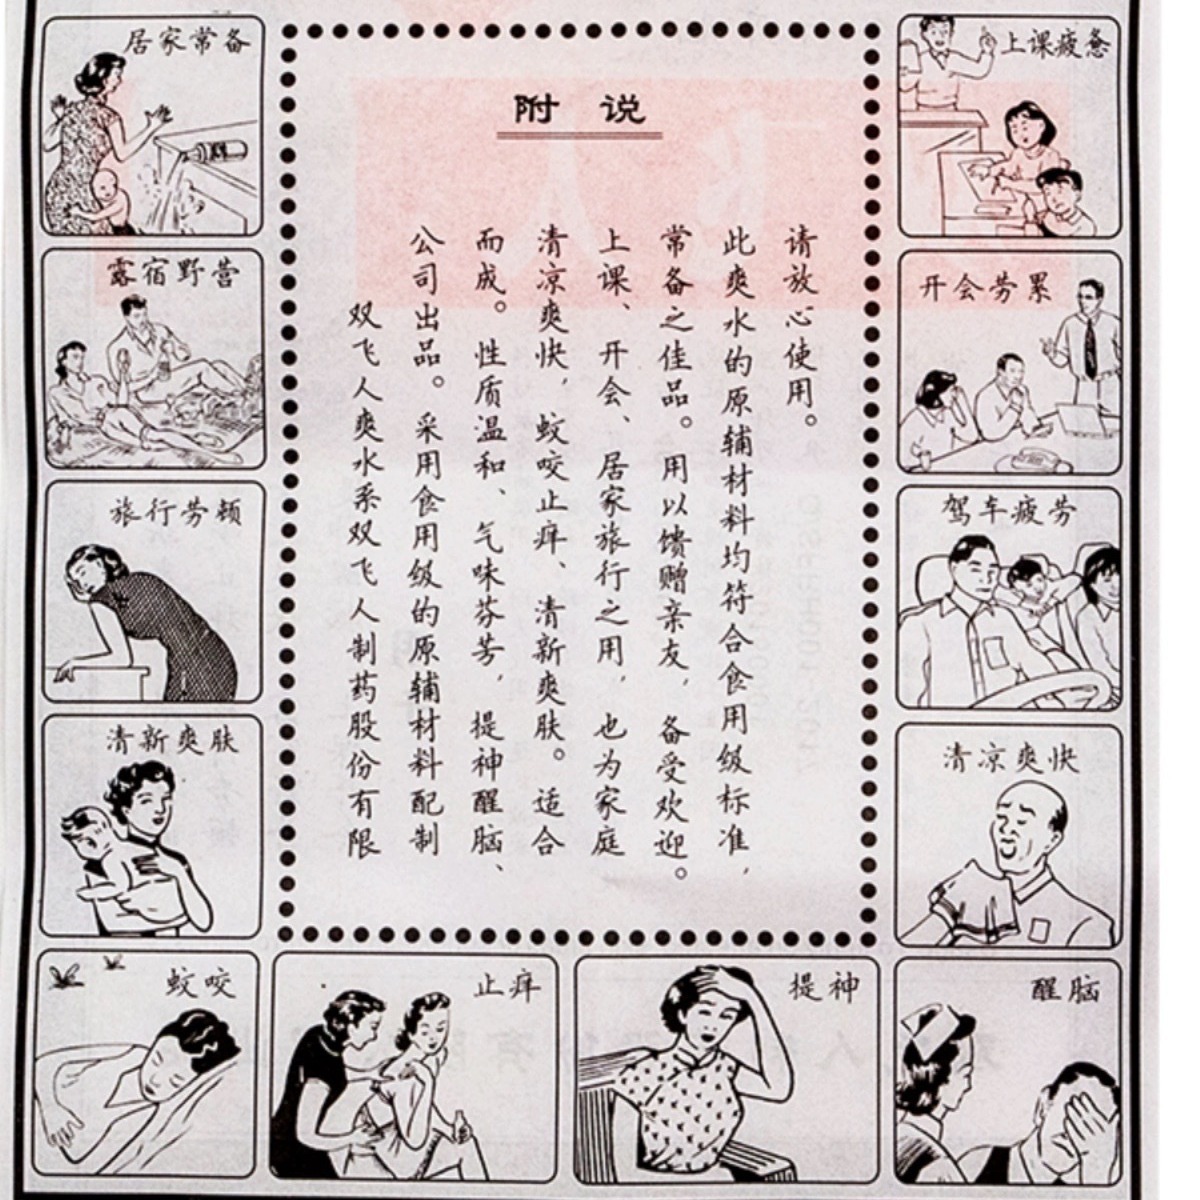 附 说
双飞人爽水系双飞人制药股份有限
公司出品。采用食用级的原辅材料配制
而成。性质温和、气味芬芳，提神醒脑、
清凉爽快，蚊咬止痒、清新爽肤。适合
上课、开会、居家旅行之用，也为家庭
常备之佳品。用以馈赠亲友，备受欢迎。
此爽水的原辅材料均符合食用级标准，
请放心使用。
居家常备
露宿野营
旅行劳顿
清新爽肤
蚊咬
止痒
提神
醒脑
上课疲惫
开会劳累
驾车疲劳
清凉爽快